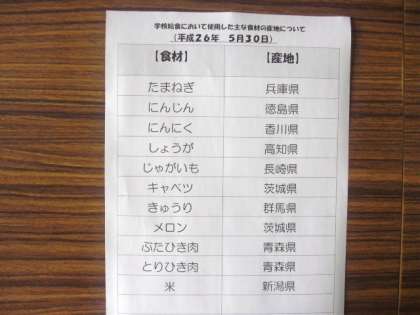 学校給食において使用した主な食材の産地について
（平成２６年　５月３０日）
【食材】　【産地】
たまねぎ　兵庫県
にんじん　徳島県
にんにく　香川県
しょうが　高知県
じゃがいも　長崎県
キャベツ　茨城県
きゅうり　群馬県
メロン　茨城県
ぶたひき肉　青森県
とりひき肉　青森県
米　新潟県